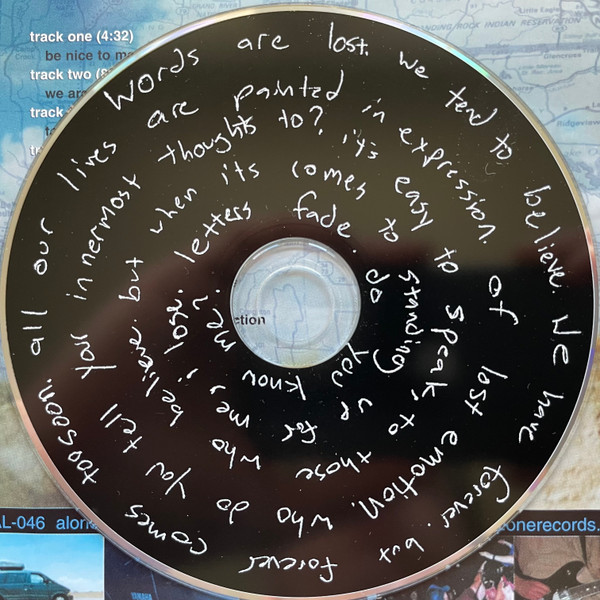 track one (4:32)
be nice to me
track two (
we are
track
Words are lost. we tend to believe. We have forever. but forever comes too soon.
all our lives are painted in expression. of lost emotion who do you tell your
innermost thoughts to? it's easy to speak, to those who believe. but
when its comes to standing up for me, i,
letters fade. do you know me?
ction
ANDING ROCK INDIAN RESERVATION
Little Eagle
Ridgeview
AL-046 alone
onerecords.
YAMAHA